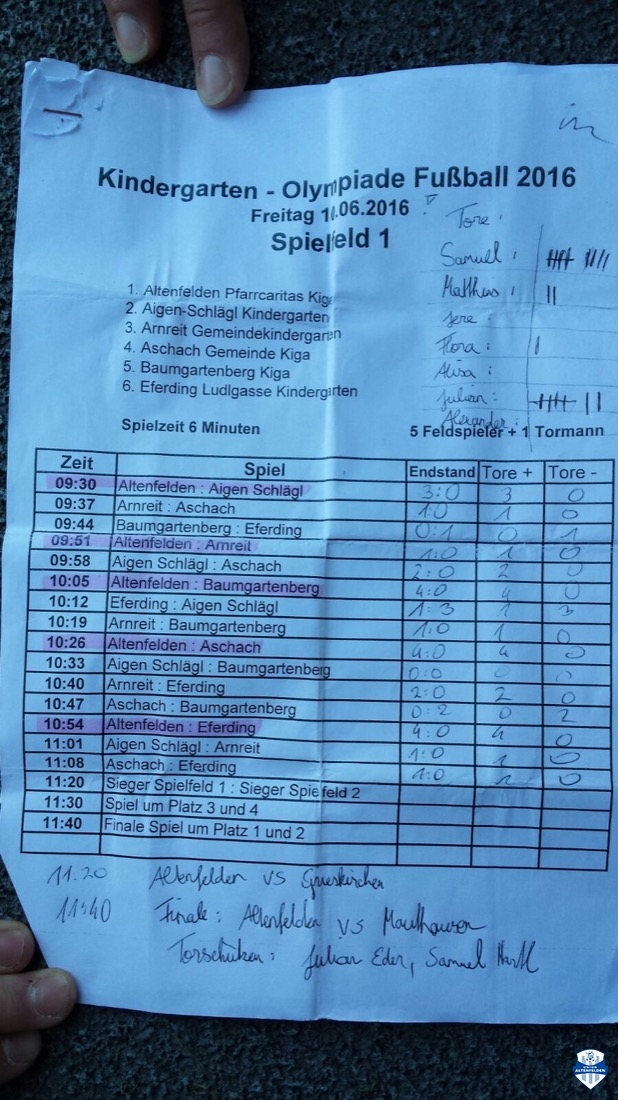 Kindergarten - Olympiade Fußball 2016
Freitag 10.06.2016
Spielfeld 1
Tore:
Samuel:
Matthias:
Jere:
Flora:
Alisa:
Julian:
Alexander:
1. Altenfelden Pfarrcaritas Kiga
2. Aigen-Schlägl Kindergarten
3. Arnreit Gemeindekindergarten
4. Aschach Gemeinde Kiga
5. Baumgartenberg Kiga
6. Eferding Ludlgasse Kindergarten
Spielzeit 6 Minuten 5 Feldspieler + 1 Tormann
Zeit Spiel Endstand Tore + Tore -
09:30 Altenfelden : Aigen Schlägl 3:0 3 0
09:37 Arnreit : Aschach 1:0 1 0
09:44 Baumgartenberg : Eferding 0:1 0 1
09:51 Altenfelden : Arnreit 1:0 1 0
09:58 Aigen Schlägl : Aschach 2:0 2 0
10:05 Altenfelden : Baumgartenberg 4:0 4 0
10:12 Eferding : Aigen Schlägl 1:3 1 3
10:19 Arnreit : Baumgartenberg 1:0 1 0
10:26 Altenfelden : Aschach 4:0 4 0
10:33 Aigen Schlägl : Baumgartenberg 0:0 0 0
10:40 Arnreit : Eferding 2:0 2 0
10:47 Aschach : Baumgartenberg 0:2 0 2
10:54 Altenfelden : Eferding 4:0 4 0
11:01 Aigen Schlägl : Arnreit 1:0 1 0
11:08 Aschach : Eferding 1:0 1 0
11:20 Sieger Spielfeld 1 : Sieger Spielfeld 2
11:30 Spiel um Platz 3 und 4
11:40 Finale Spiel um Platz 1 und 2
11.20 Altenfelden VS Grieskirchen
11:40 Finale: Altenfelden VS Mauthausen
Torschützen: Julian Eder, Samuel Hartl
UNION
ALTENFELDEN